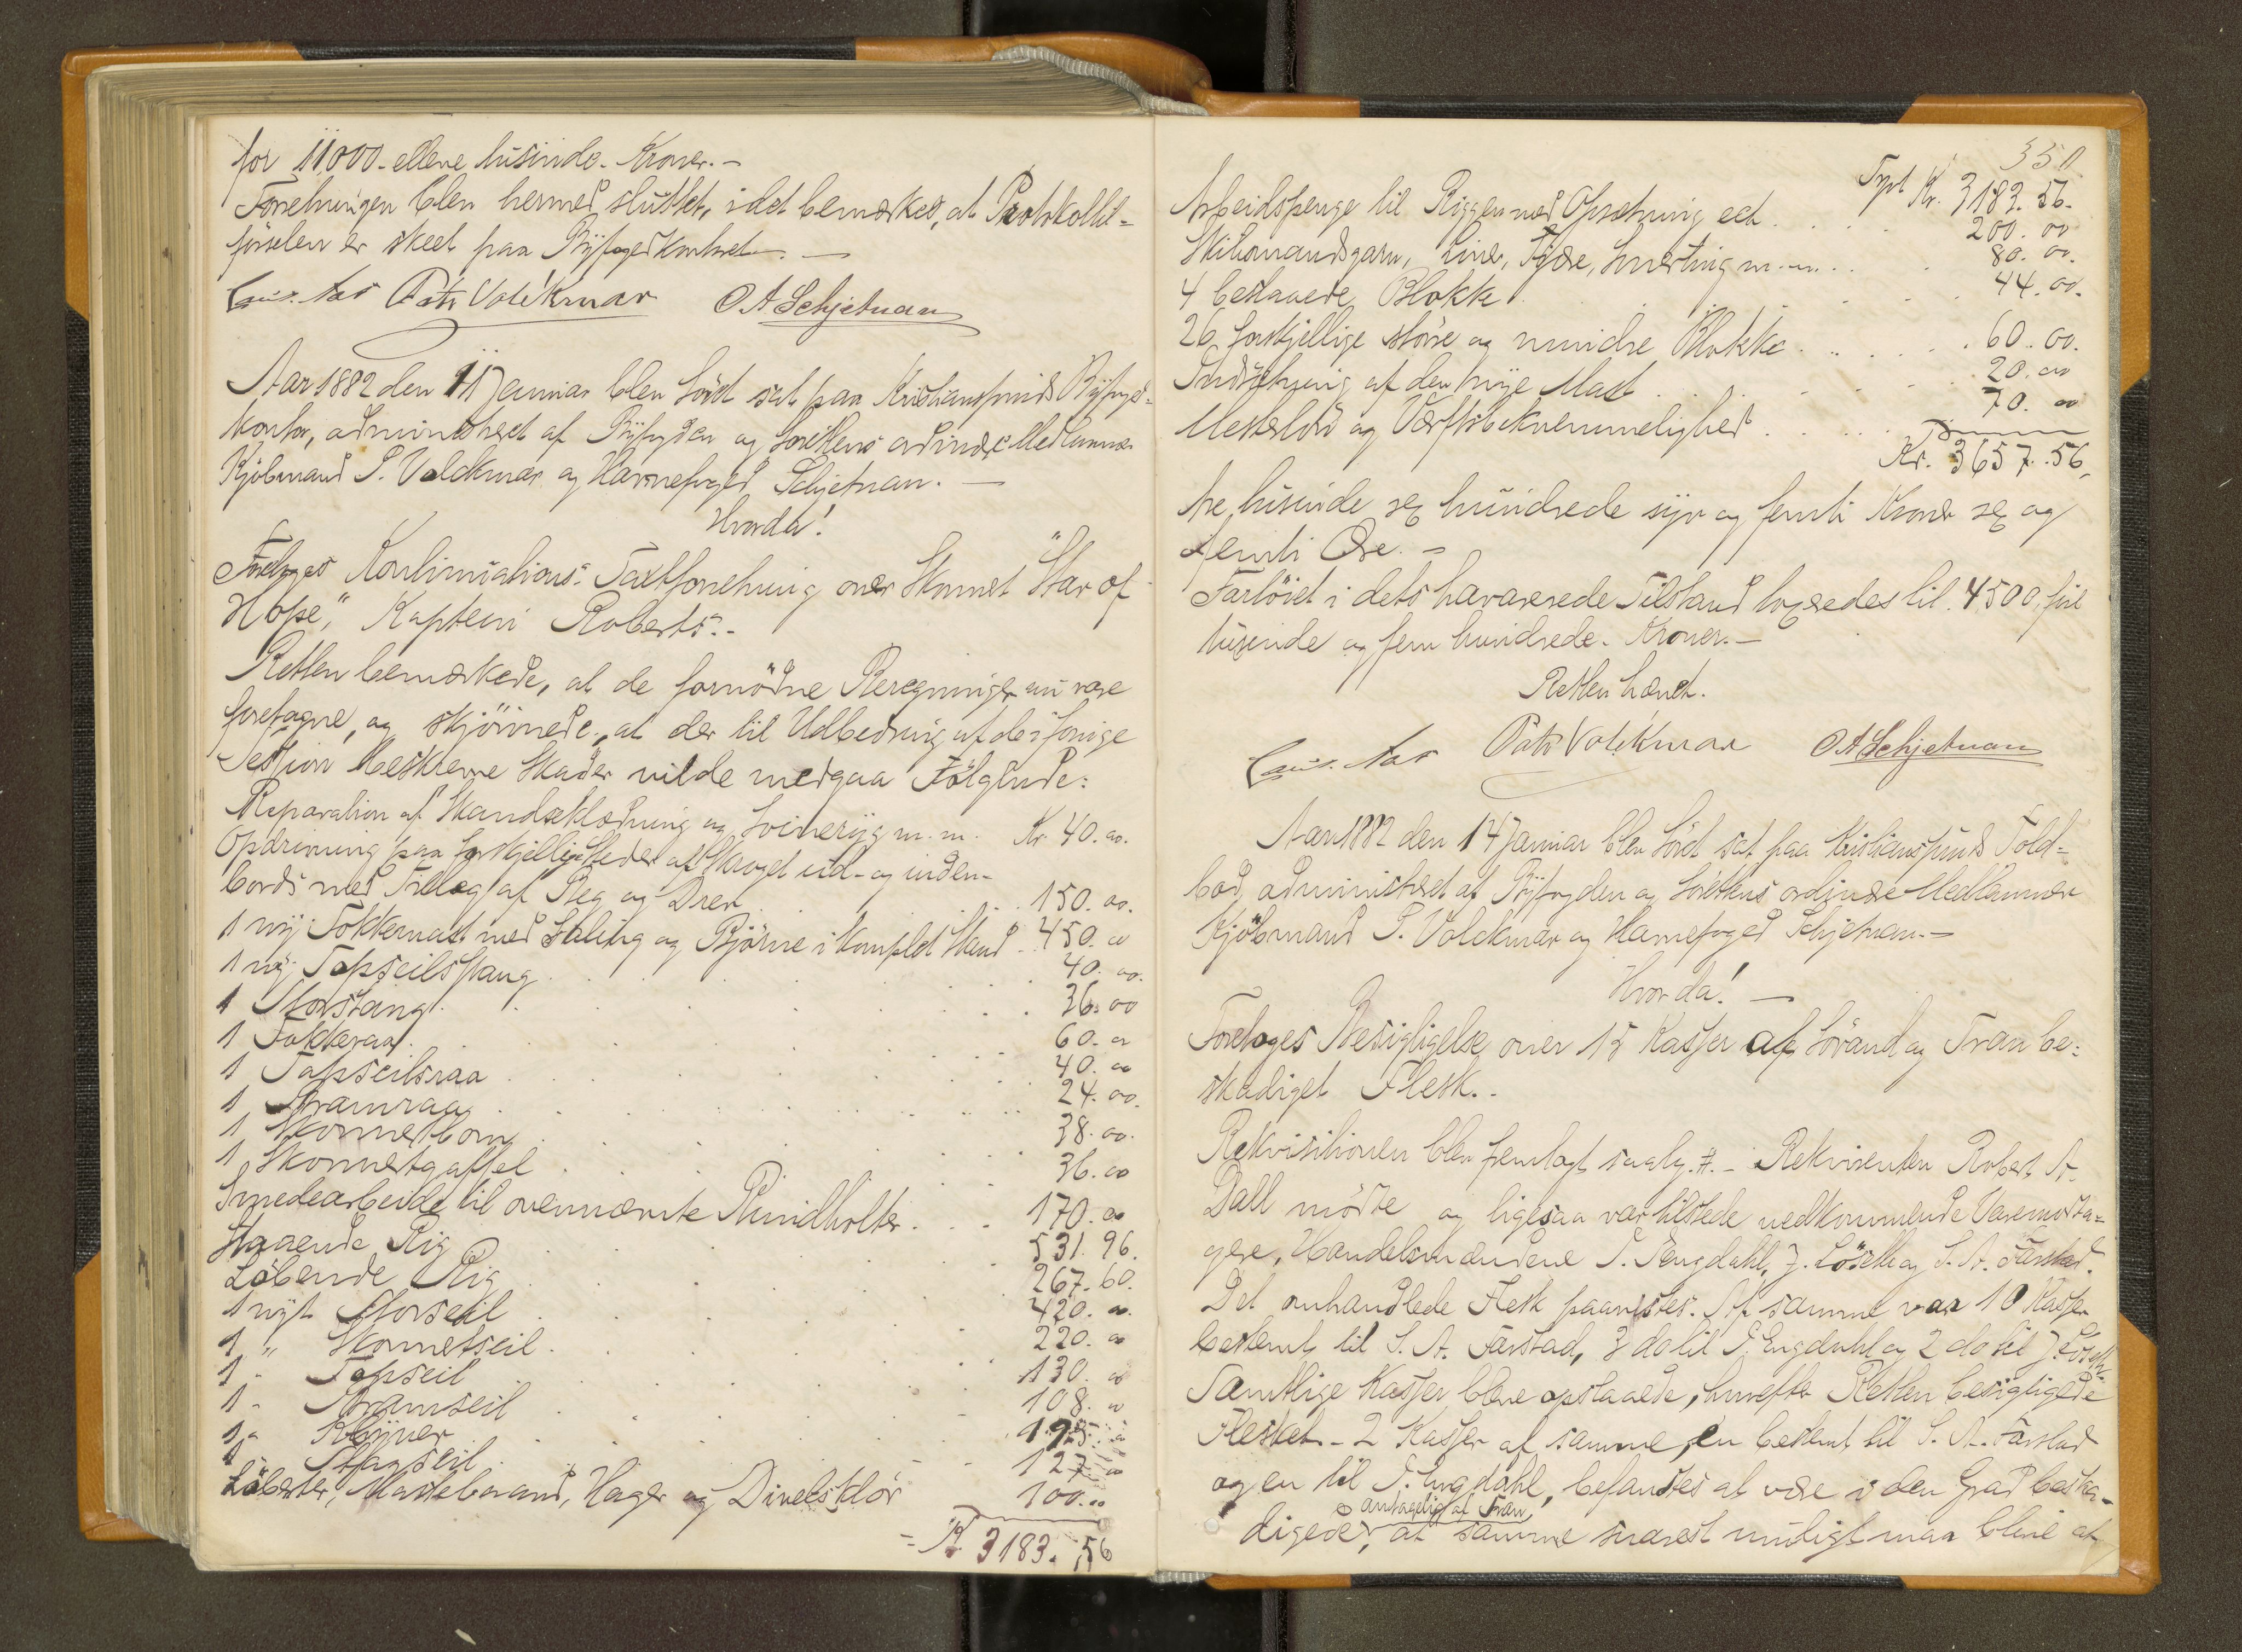 for 11000 - elleve tusinde - Kroner. -
Forretningen blev hermed sluttet, idet bemærkes, at Protokoltil-
førselen er skeet paa Byfogedkontoret. -
Petr Volckmar O. A. Schjetnan
Aar 1882 den 11 Januar blev Søret sat paa Kristianssunds Byfoged-
kontor, administreret af Byfogden og Sørettens ordinære Medlemmer
Kjøbmand P. Volckmar og Havnefoged Schjetnan. -
Hvorda!
Foretoges Kontinuations-Taxtforretning over Skonnert "Star of
Hope", Kaptein Roberts. -
Retten bemærkede, at de fornødne Beregninger nu vare
foretagne, og skjønnede, at der til Udbedring af de i forrige
Session beskrevne Skader vilde medgaa Følgende:
Reparation af Skandseklædning og Svineryg m. m. Kr. 40. 00.
Opdrivning paa forskjellige Steder af Skroget ud- og inden-
bords med Tillæg af Beg og Drev . . . 150. 00.
1 ny Fokkemast med Saling og Bjørne i komplet Stand . 450. 00
1 ny Topseilstang . . . 40. 00.
1 Storstang . . . 36. 00
1 Fokkeraa . . . 60. 00
1 Topseilsraa . . . 40. 00
1 Bramraa . . . 24. 00.
1 Skonnertbom . . . 38. 00.
1 Skonnertgaffel . . . 36. 00
Smedearbeide til ovennævnte Rundholter . . . 170. 00
Staaende Rig . . . 531. 96.
Løbende Rig . . . 267. 60.
1 nyt Storseil . . . 420. 00.
1 " Skonnetseil . . . 220. 00
1 " Topseil . . . 130. 00
1 - Bramseil . . . 108. 00
1 " Klyver . . . 195.
1 Stagseil . . . 127. 00
Løberter, Mastebaand, Hager og Divelsklør 100. 00
= Kr. 3183. 56
350
Tpt Kr. 3183. 56.
Arbeidspenge til Riggen med Opsætning ect . . . 200. 00
Skibmandsgarn, Liner, Tjære, Smerting m. m. . . 80. 00.
4 beslaaede Blokke . . . 44. 00.
26 forskjellige større og mindre Blokke . . . 60. 00.
Indsætning af den nye Mast . . . 20. 00
Mesterløn og Værftsbekvemmelighed . . . 70. 00
Kr. 3657. 56.
tre tusinde sex hundrede syv og femti Kroner sex og
femti Øre. -
Fartøiet i dets havarerede Tilstand taxeredes til 4500, fire
tusinde og fem hundrede - Kroner. -
Retten hævet.
Petr Volckmar O. A. Schjetnan
Aar 1882 den 14 Januar blev Søret sat paa Kristianssunds Told-
bod, administreret af Byfogden og Sørettens ordinære Medlemmer
Kjøbmand P. Volckmar og Havnefoged Schjetnan. -
Hvorda! -
Foretoges Besigtigelse over 15 Kasser af Søvand og Tran be-
skadiget Flesk. -
Rekvisitionen blev fremlagt saalg. #. - Rekvirenten Robert A.
Dall mødte og ligesaa var tilstede vedkommende Varemodta-
gere, Handelsmændene P. Engdahl, J. Løseth og S. A. Farstad.
Det omhandlede Flesk paavistes. Af samme var 10 Kasser
bestemt til S. A. Farstad, 3 do til P. Engdahl og 2 do til J. Løseth.
Samtlige Kasser bleve opslaaede, hvorefter Retten besigtigede
Flesket. - 2 Kasser af samme, en bestemt til S. A. Farstad
og en til P. Engdahl, befandtes at være i den Grad beska-
antagelig af Tran,
digede, at samme snarest muligt maa blive at